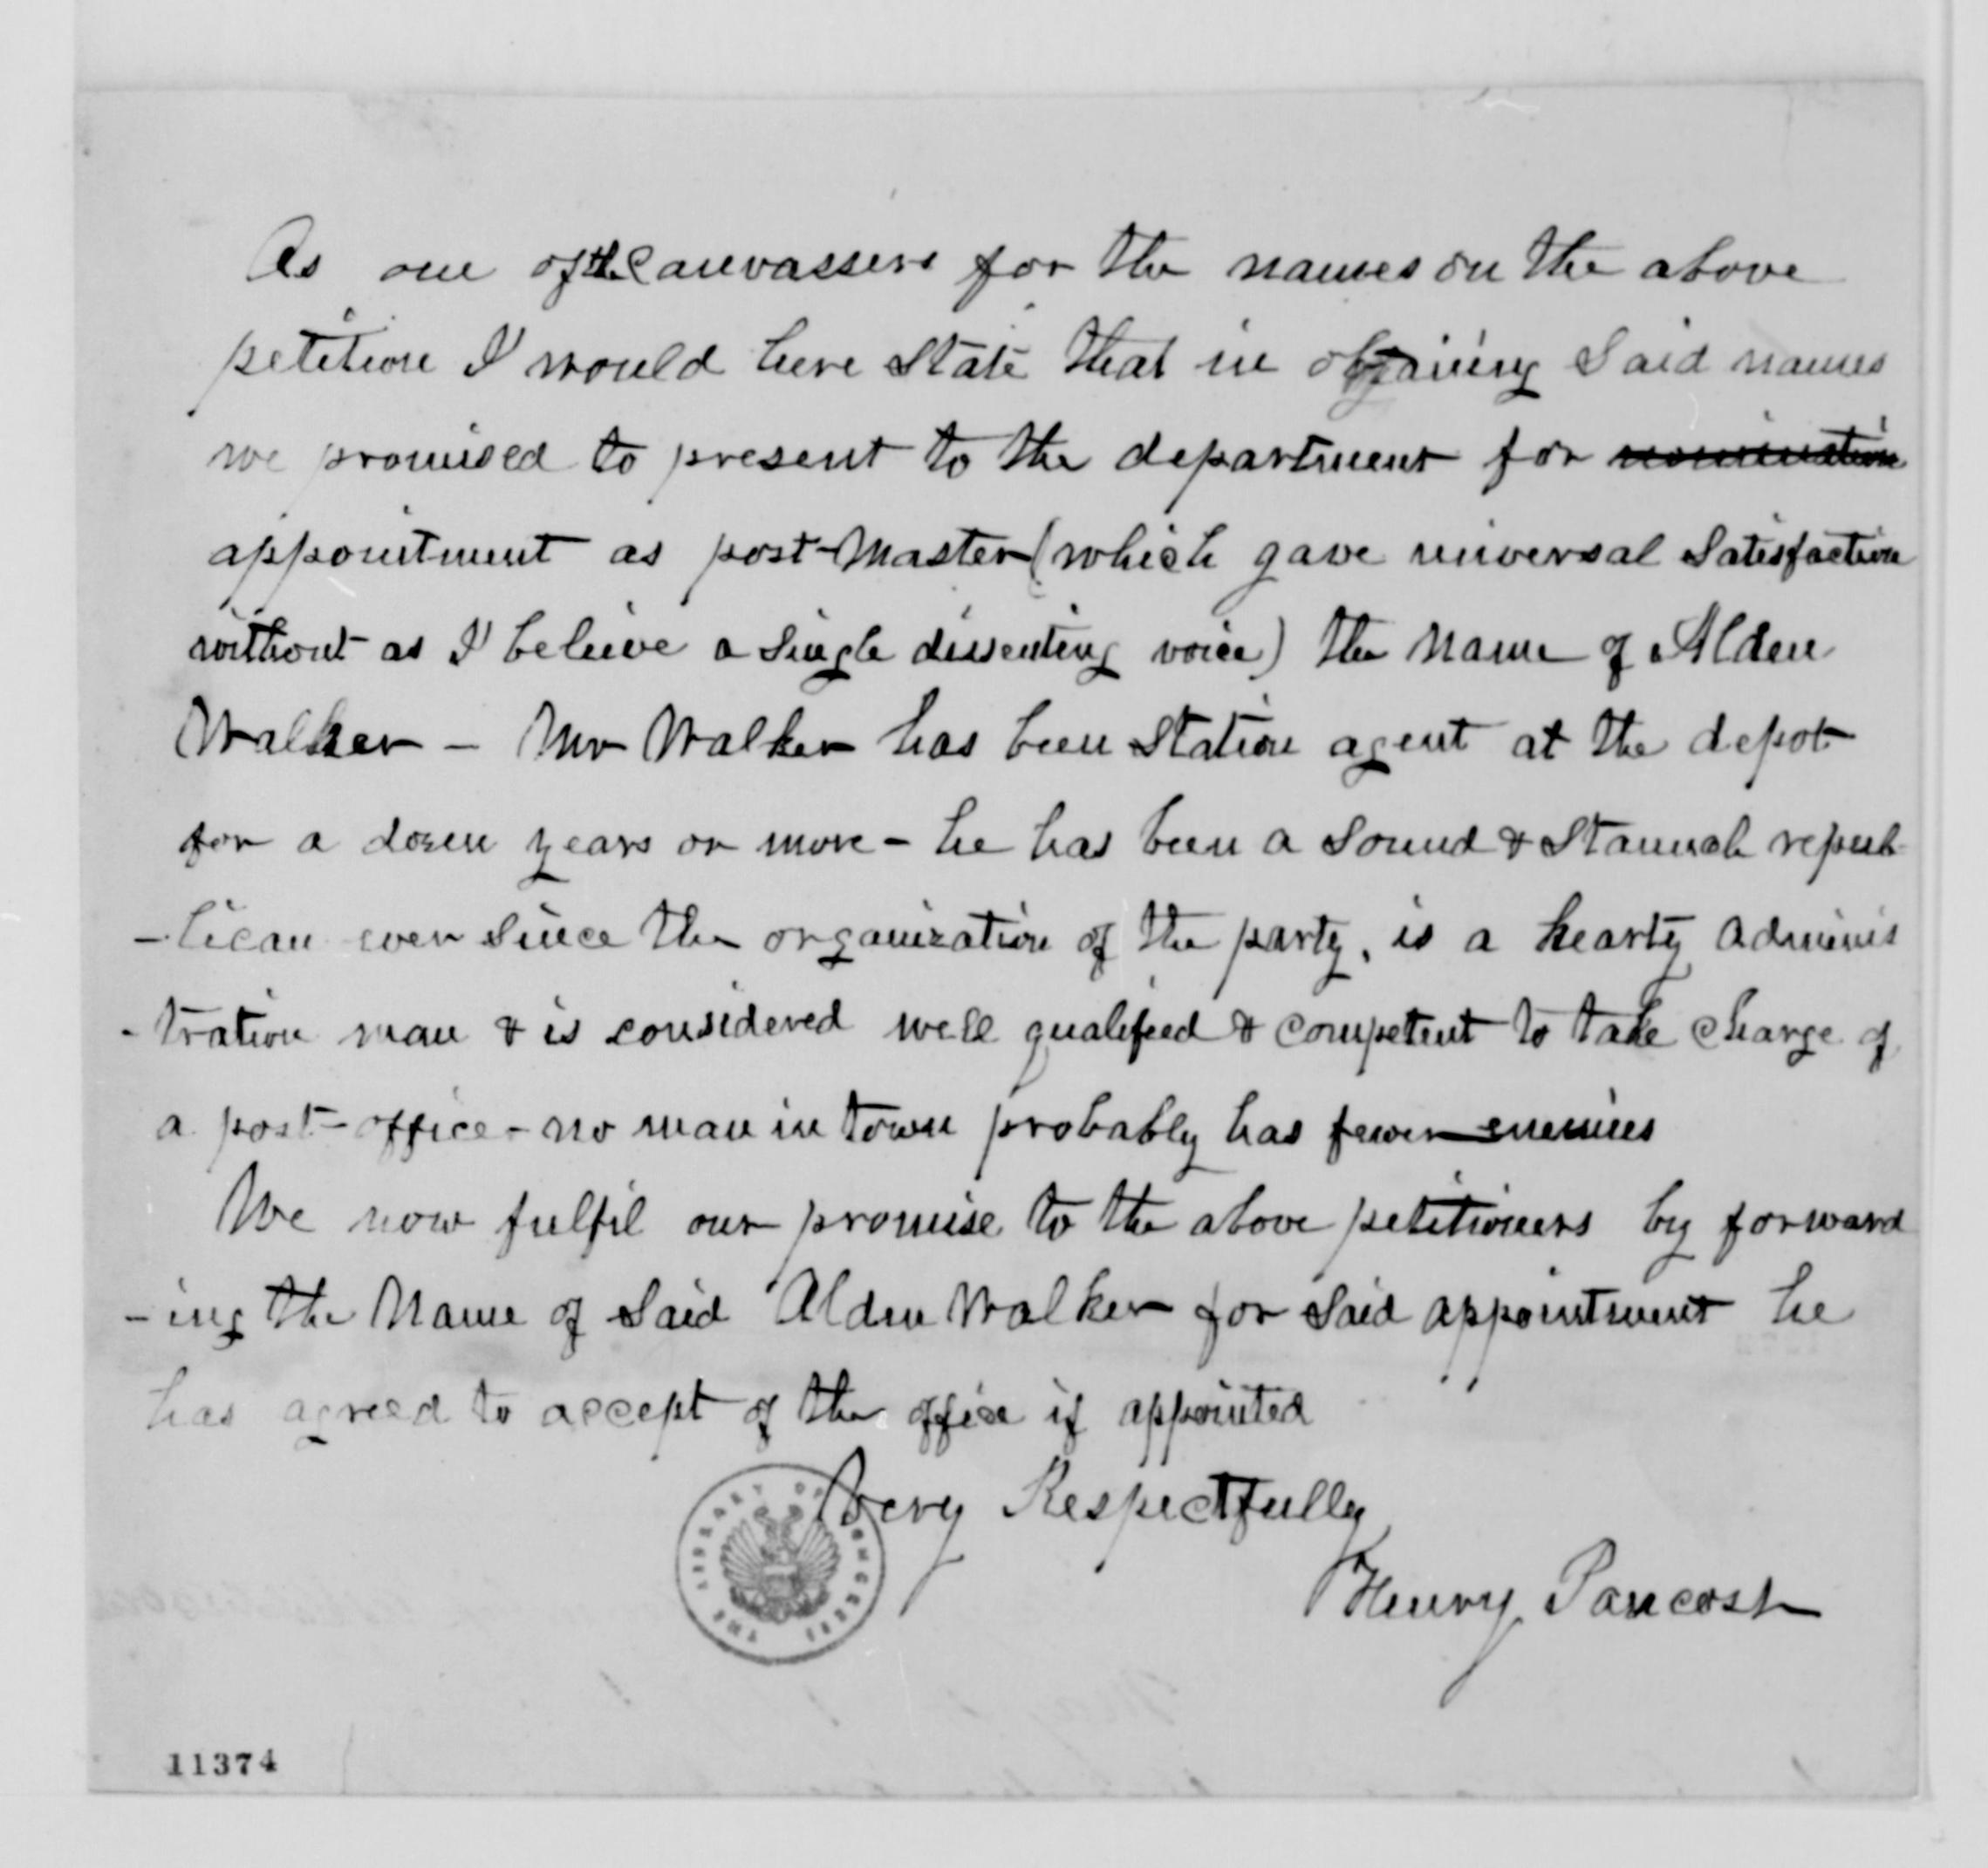 As one of the Canvassers for the names on the above
petition I would here State that in obtaining Said names
we promised to present to the department for nomination
appointment as post-Master (which gave universal Satisfaction
without as I believe a Single dissenting voice) the Name of Alden
Walker - Mr Walker has been Station agent at the depot
for a dozen years or more - he has been a Sound & Staunch repub
-lican ever Since the organization of the party, is a hearty Adminis
-tration man & is considered well qualified & competent to take charge of
a post-office - no man in town probably has fewer enemies
We now fulfil our promise to the above petitioners by forward
-ing the Name of Said Alden Walker for Said appointment he
has agreed to accept of the office if appointed
Very Respectfully
Henry Pancost
THE LIBRARY OF CONGRESS
11374